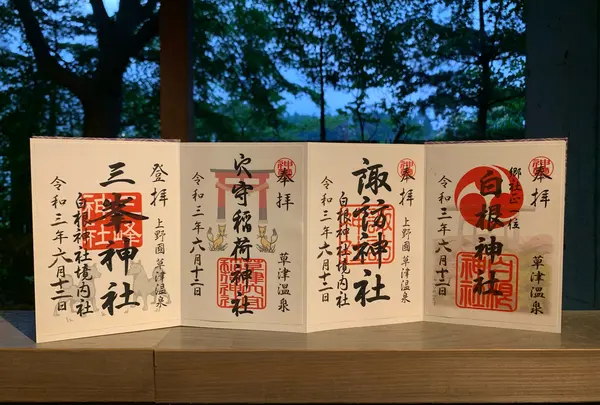 奉拝
草津温泉
郷社正一位
白根神社
令和三年六月十二日
奉拝
上野國草津温泉
諏訪神社
白根神社境内社
令和三年六月十二日
奉拝
草津温泉
穴守稲荷神社
令和三年六月十二日
登拝
上野國草津温泉
三峯神社
三峰神社
白根神社境内社
令和三年六月十二日